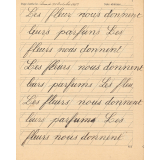 Les fleurs nous donnent
leurs parfums Les
fleurs nous donnent
leurs parfums Les fleu
Les fleurs nous donnent
leurs parfums Les
fleurs nous donnent